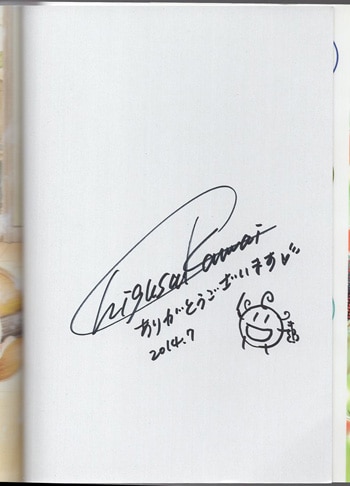 Chigusa Kawai
ありがとうございます
2014.7